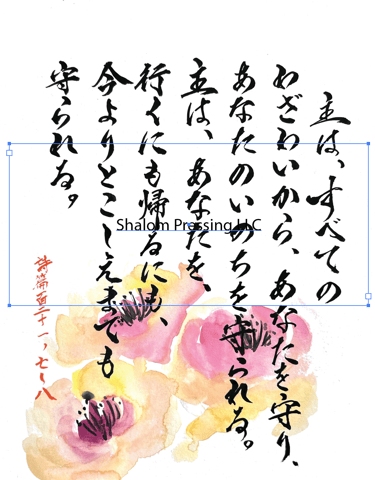 主は、すべての
わざわいから、あなたを守り、
あなたのいのちを守られる。
主は、あなたを、
行くにも帰るにも、
今よりとこしえまでも
守られる。
詩篇百二十一，七〜八
Shalom Pressing LLC